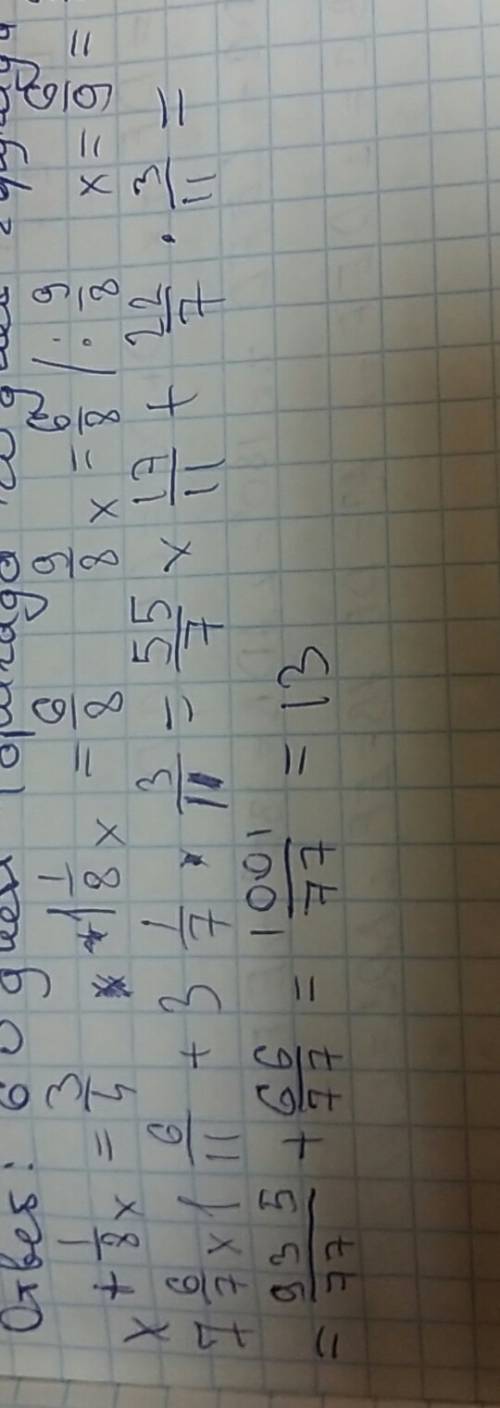 Ответ: 60 дней
x + 1/8 x = 3/4 1 1/8 x = 6/8 9/8 x = 6/8 | : 9/8 x = 6/9 =
7 6/7 x 1 6/11 + 3 1/7 · 3/11 = 55/7 x 17/11 + 22/7 · 3/11 =
= 935/77 + 66/77 = 1001/77 = 13